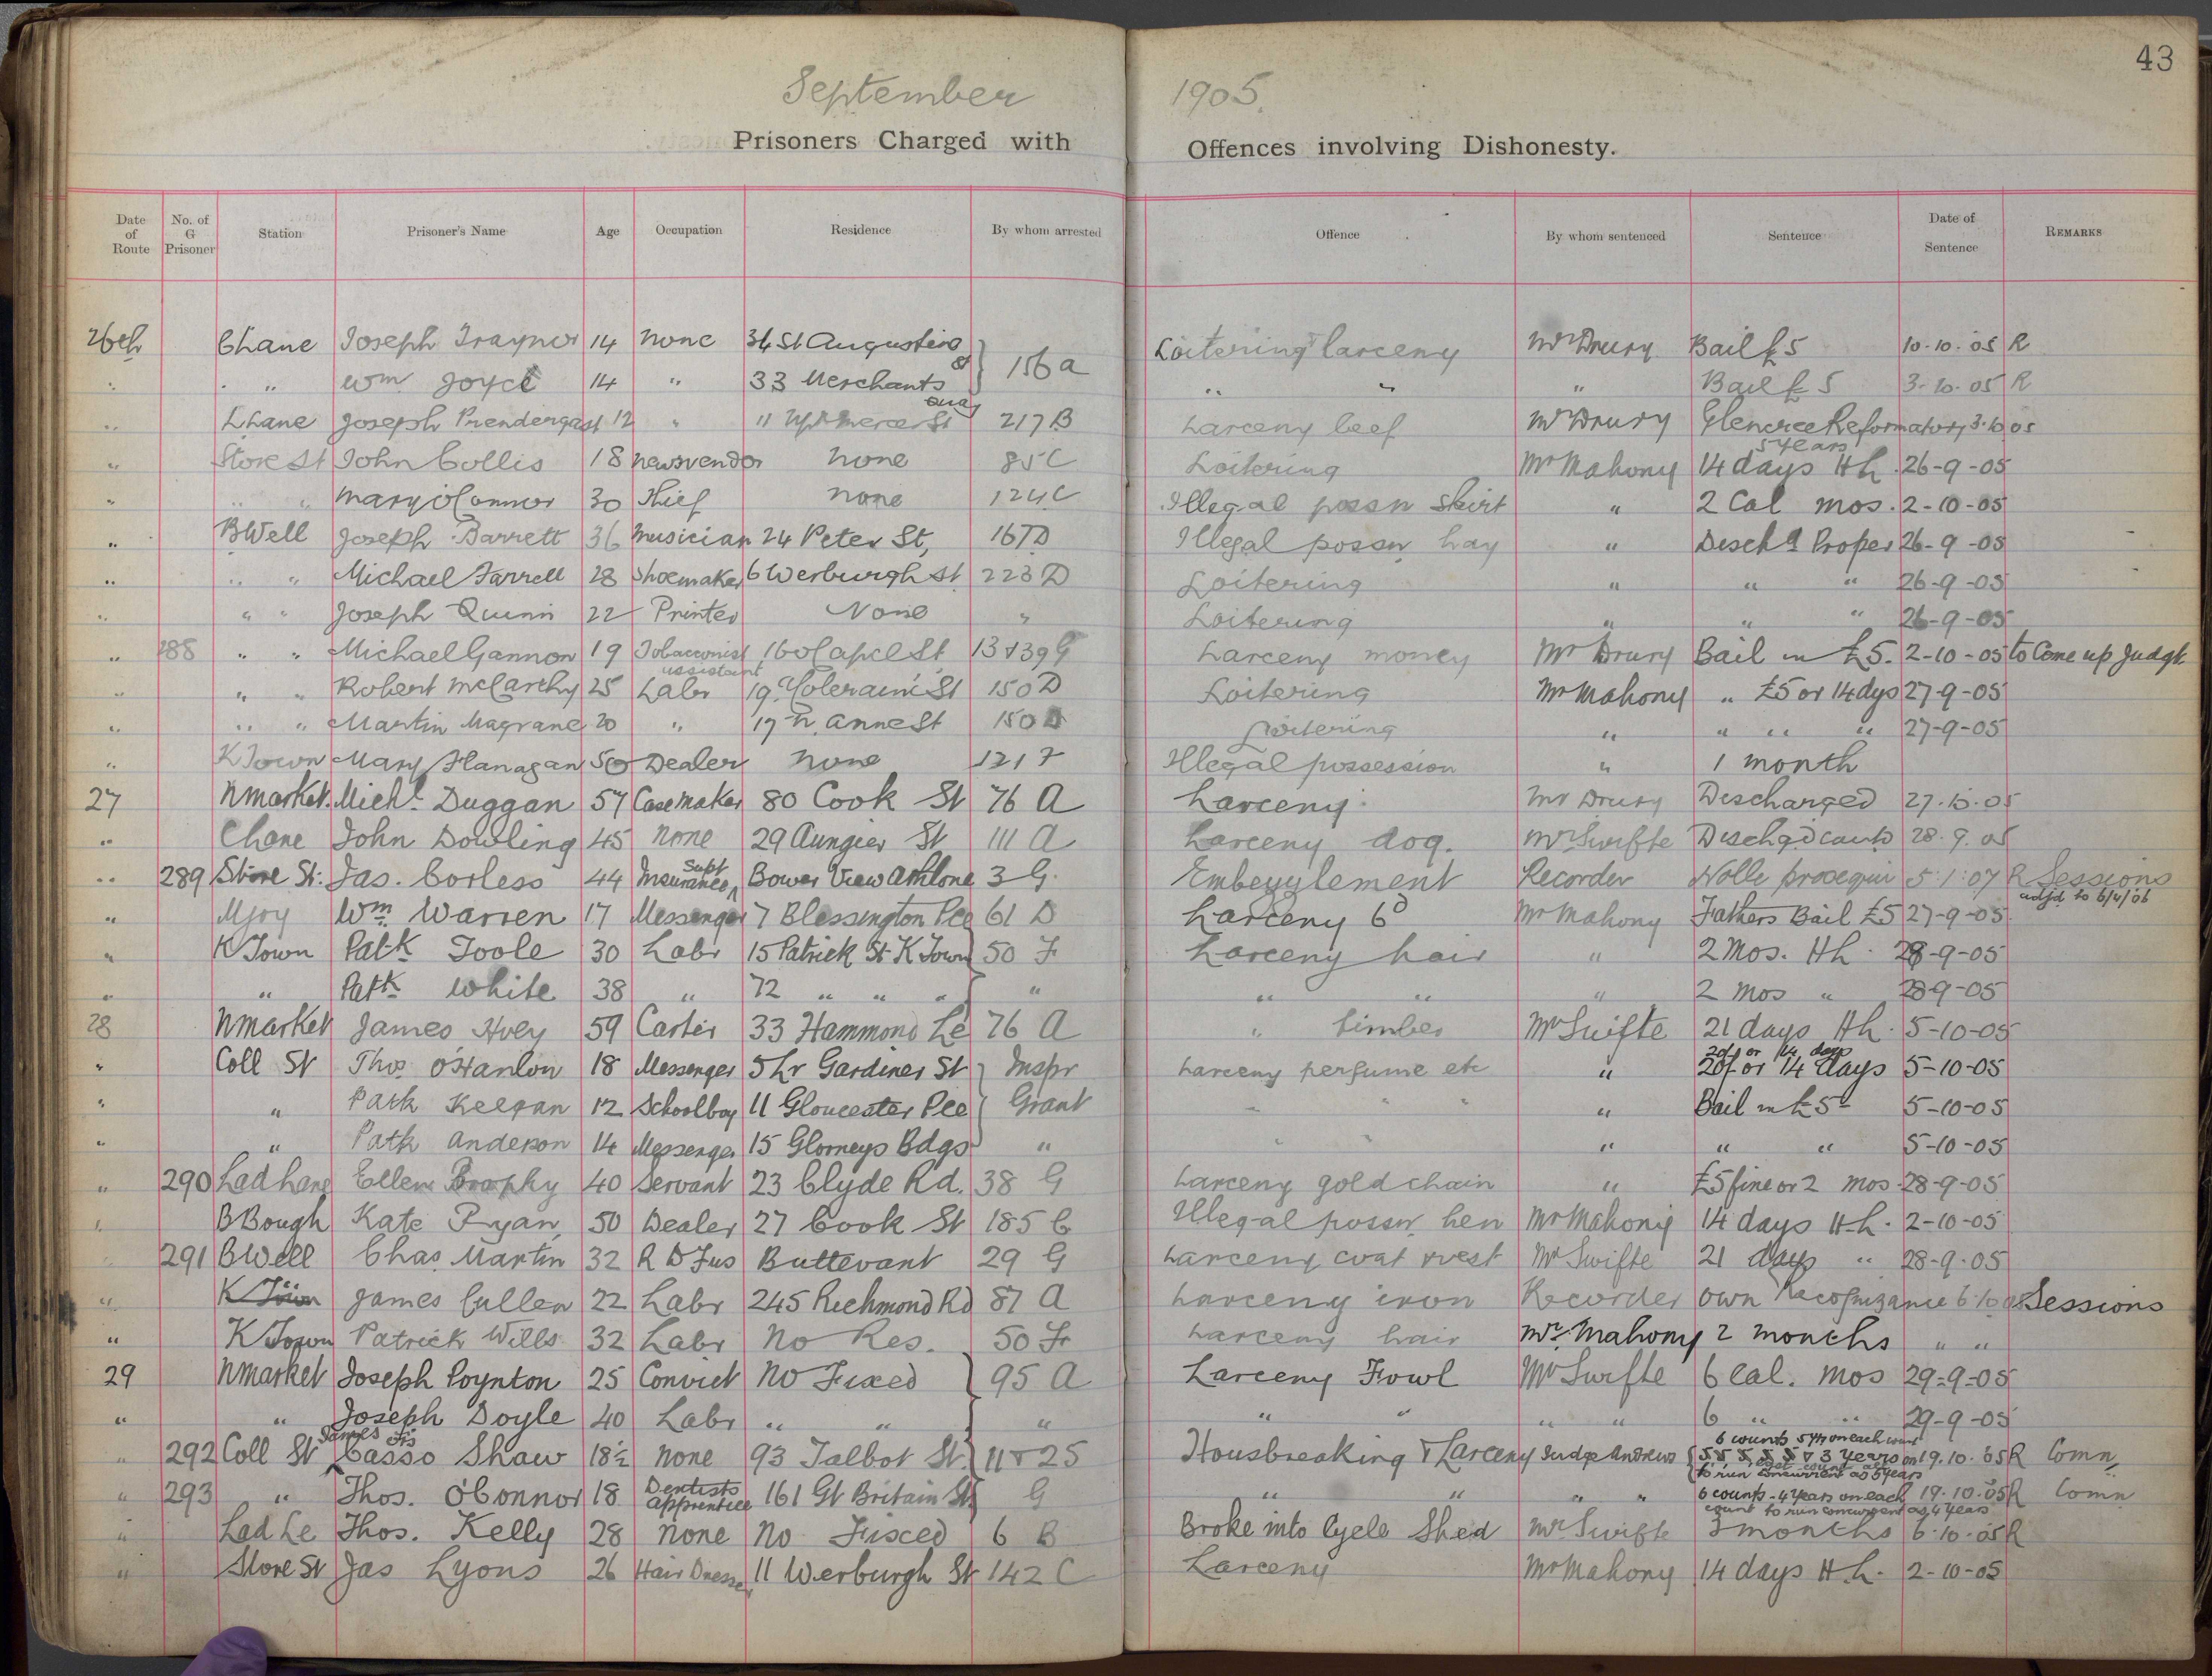 43
September 1905.
Prisoners Charged with Offences involving Dishonesty.
Date of Route No. of G Prisoner Station Prisoner's Name Age Occupation Residence By whom arrested Offence By whom sentenced Sentence Date of Sentence REMARKS
26th Chane Joseph Traynor 14 none 34 St Augustine St 156 a Loitering larceny Mr Drury Bail £5 10.10.05 R
" " Wm Joyce 14 " 33 Merchants Quay " " " Bail £5 3.10.05 R
" LLane Joseph Prendergast 12 " 11 Upr Mercer St 217 B Larceny beef Mr Drury Glencree Reformatory 5 years 3.10 05
" Store St John Collis 18 newsvendor none 85 C Loitering Mr Mahony 14 days Hh. 26-9-05
" " " Mary O'Connor 30 Thief none 124 C Illegal possn Skirt " 2 Cal mos. 2-10-05
" BWell Joseph Barrett 36 musician 24 Peter St, 167 D Illegal possn hay " Disch'd Proper 26-9-05
" " " Michael Farrell 28 Shoemaker 6 Werburgh St 223 D Loitering " " " 26-9-05
" " " Joseph Quinn 22 Printer None " Loitering " " " 26-9-05
" 288 " " Michael Gannon 19 Tobacconist assistant 160 Capel St 13 & 39 G Larceny money Mr Drury Bail in £5. 2-10-05 to Come up Judgt
" " " Robert McCarthy 25 Labr 19 Coleraine St 150 D Loitering Mr Mahony " £5 or 14 dys 27-9-05
" " " Martin Magrane 20 " 17 N. Anne St 150 D Loitering " " " " 27-9-05
" KTown Mary Flanagan 50 Dealer none 121 F Illegal possession " 1 month
27 Nmarket. Michl Duggan 57 Casemaker 80 Cook St 76 A Larceny Mr Drury Discharged 27.10.05
" Chane John Dowling 45 none 29 Aungier St 111 A Larceny dog. Mr Swifte Dischgd caut 28.9.05
" 289 Store St: Jas. Corless 44 Insurance Supt Bower View Athlone 3 G. Embezzlement Recorder Nolle prosequi 5.1.07 R Sessions adjd to 6/4/06
" Mjoy Wm Warren 17 Messenger 7 Blessington Pce 61 D Larceny 6d Mr Mahony Fathers Bail £5 27-9-05
" KTown Patk Toole 30 Labr 15 Patrick St KTown 50 F Larceny hair " 2 Mos. Hh. 28-9-05
" " Patk White 38 " 72 " " " " " " " 2 mos " 28-9-05
28 Nmarket James Hoey 59 Carter 33 Hammond Le 76 A " timber Mr Swifte 21 days Hh. 5-10-05
" Coll St Thos O'Hanlon 18 Messenger 5 Lr Gardiner St Inspr Larceny perfume etc " 20/- or 14 days 20/- or 14 days 5-10-05
" " Patk Keegan 12 Schoolboy 11 Gloucester Pce Grant " " " " Bail in £5- 5-10-05
" " Patk Anderson 14 Messenger 15 Glorneys Bdgs " " " " " " 5-10-05
" 290 Lad Lane Ellen Brophy 40 Servant 23 Clyde Rd. 38 G Larceny gold chain " £5 fine or 2 mos. 28-9-05
" BBough Kate Ryan 50 Dealer 27 Cook St 185 C Illegal possn hen Mr Mahony 14 days Hh. 2-10-05
291 BWell Chas Martin 32 R D Fus Buttevant 29 G Larceny coat & vest Mr Swifte 21 days " 28-9-05
" K Town James Cullen 22 Labr 245 Richmond Rd 87 A Larceny iron Recorder own Recognizance 6.10.05 Sessions
" KTown Patrick Wills 32 Labr No Res. 50 F Larceny hair Mr. Mahony 2 months " "
29 Nmarket Joseph Poynton 25 Convict No Fixed 95 A Larceny Fowl Mr Swifte 6 Cal. mos 29-9-05
" " Joseph Doyle 40 Labr " " " " " " " 6 " " 29-9-05
" 292 Coll St James Casso Shaw 18½ none 93 Talbot St. 11 & 25 Housbreaking & Larceny Judge Andrews 6 counts 5 yrs on each count 5 5 5 5 5 & 3 Years on last count all to run concurrent as 5 years 19.10.05 R Comn
" 293 " Thos. O'Connor 18 Dentists apprentice 161 Gt Britain St G " " " " 6 counts - 4 Years on each count to run concurrent as 4 Years 19.10.05 R Comn
" Lad Le Thos. Kelly 28 none no Fixed 6 B Broke into Cycle Shed Mr Swifte 3 months 6.10.05 R
" Store St Jas Lyons 26 Hair Dresser 11 Werburgh St 142 C Larceny Mr Mahony 14 days H.h. 2-10-05